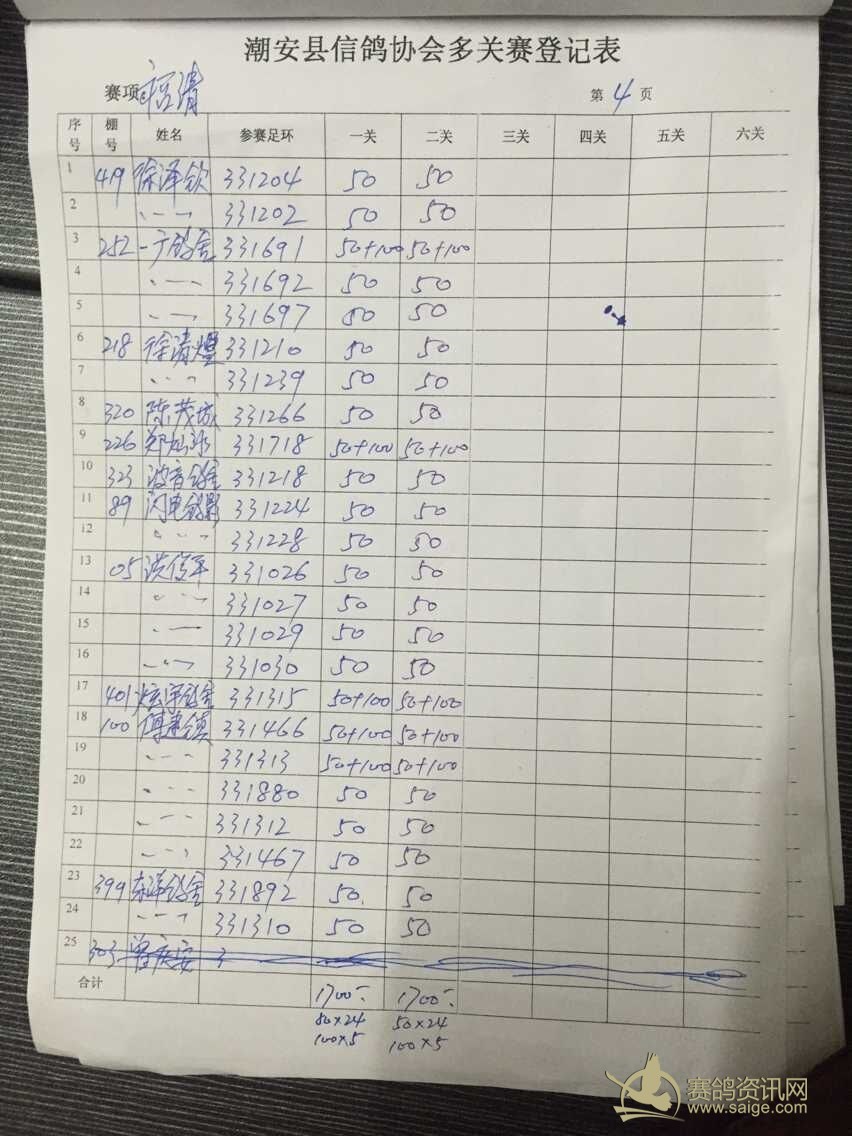 潮安县信鸽协会多关赛登记表
赛项: 福清 第 4 页
序号 棚号 姓名 参赛足环 一关 二关 三关 四关 五关 六关
1 419 徐泽钦 331204 50 50
2 331202 50 50
3 252 一方鸽舍 331691 50+100 50+100
4 331692 50 50
5 331697 50 50
6 218 徐清煌 331210 50 50
7 331239 50 50
8 320 陈茂城 331266 50 50
9 226 331718 50+100 50+100
10 323 波音鸽舍 331218 50 50
11 89 闪电鸽 331224 50 50
12 331228 50 50
13 05 洪 331026 50 50
14 331027 50 50
15 331029 50 50
16 331030 50 50
17 401 炫宇鸽舍 331315 50+100 50+100
18 100 331466 50+100 50+100
19 331313 50+100 50+100
20 331880 50 50
21 331312 50 50
22 331467 50 50
23 399 东洋鸽舍 331892 50 50
24 331310 50 50
25 303 曾庆安 3
合计 1700 1700
50×24 50×24
100×5 100×5
赛鸽资讯网
www.saige.com